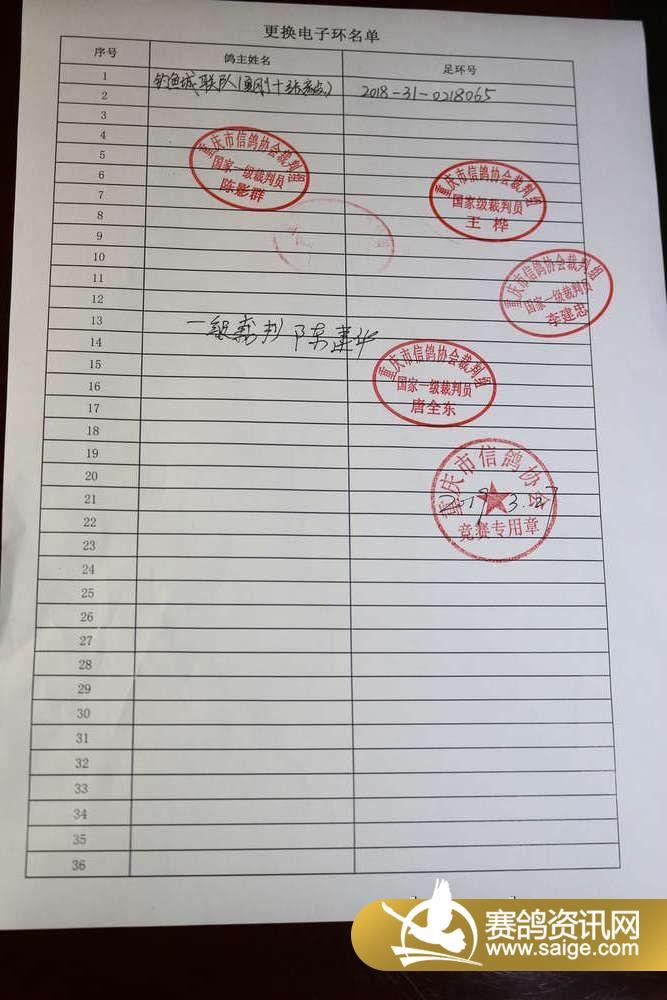 更换电子环名单
序号 鸽主姓名 足环号
1 钓鱼城联队 2018-31-0218065
2
3
4
重庆市信鸽协会裁判组
国家一级裁判员
陈影群
5
6
重庆市信鸽协会裁判组
国家级裁判员
王桦
7
8
9
10
重庆市信鸽协会裁判组
国家一级裁判员
李建忠
11
12
13
一级裁判
14
重庆市信鸽协会裁判组
国家一级裁判员
唐全东
15
16
17
18
19
重庆市信鸽协会
20
21
2019.3.27
竞赛专用章
22
23
24
25
26
27
28
29
30
31
32
33
34
35
36
赛鸽资讯网
www.saige.com